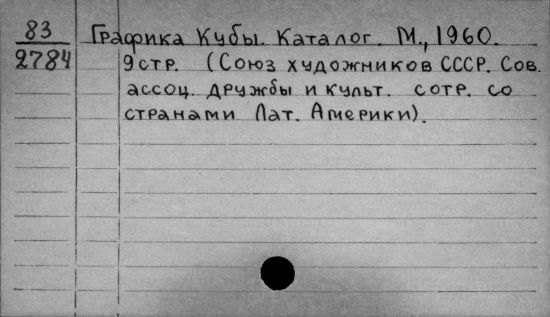 83 Графика Кубы. Каталог. М., 1960.
2784 9стр. (Союз художников СССР. Сов.
ассоц. дружбы и культ. сотр. со
странами Лат. Америки).